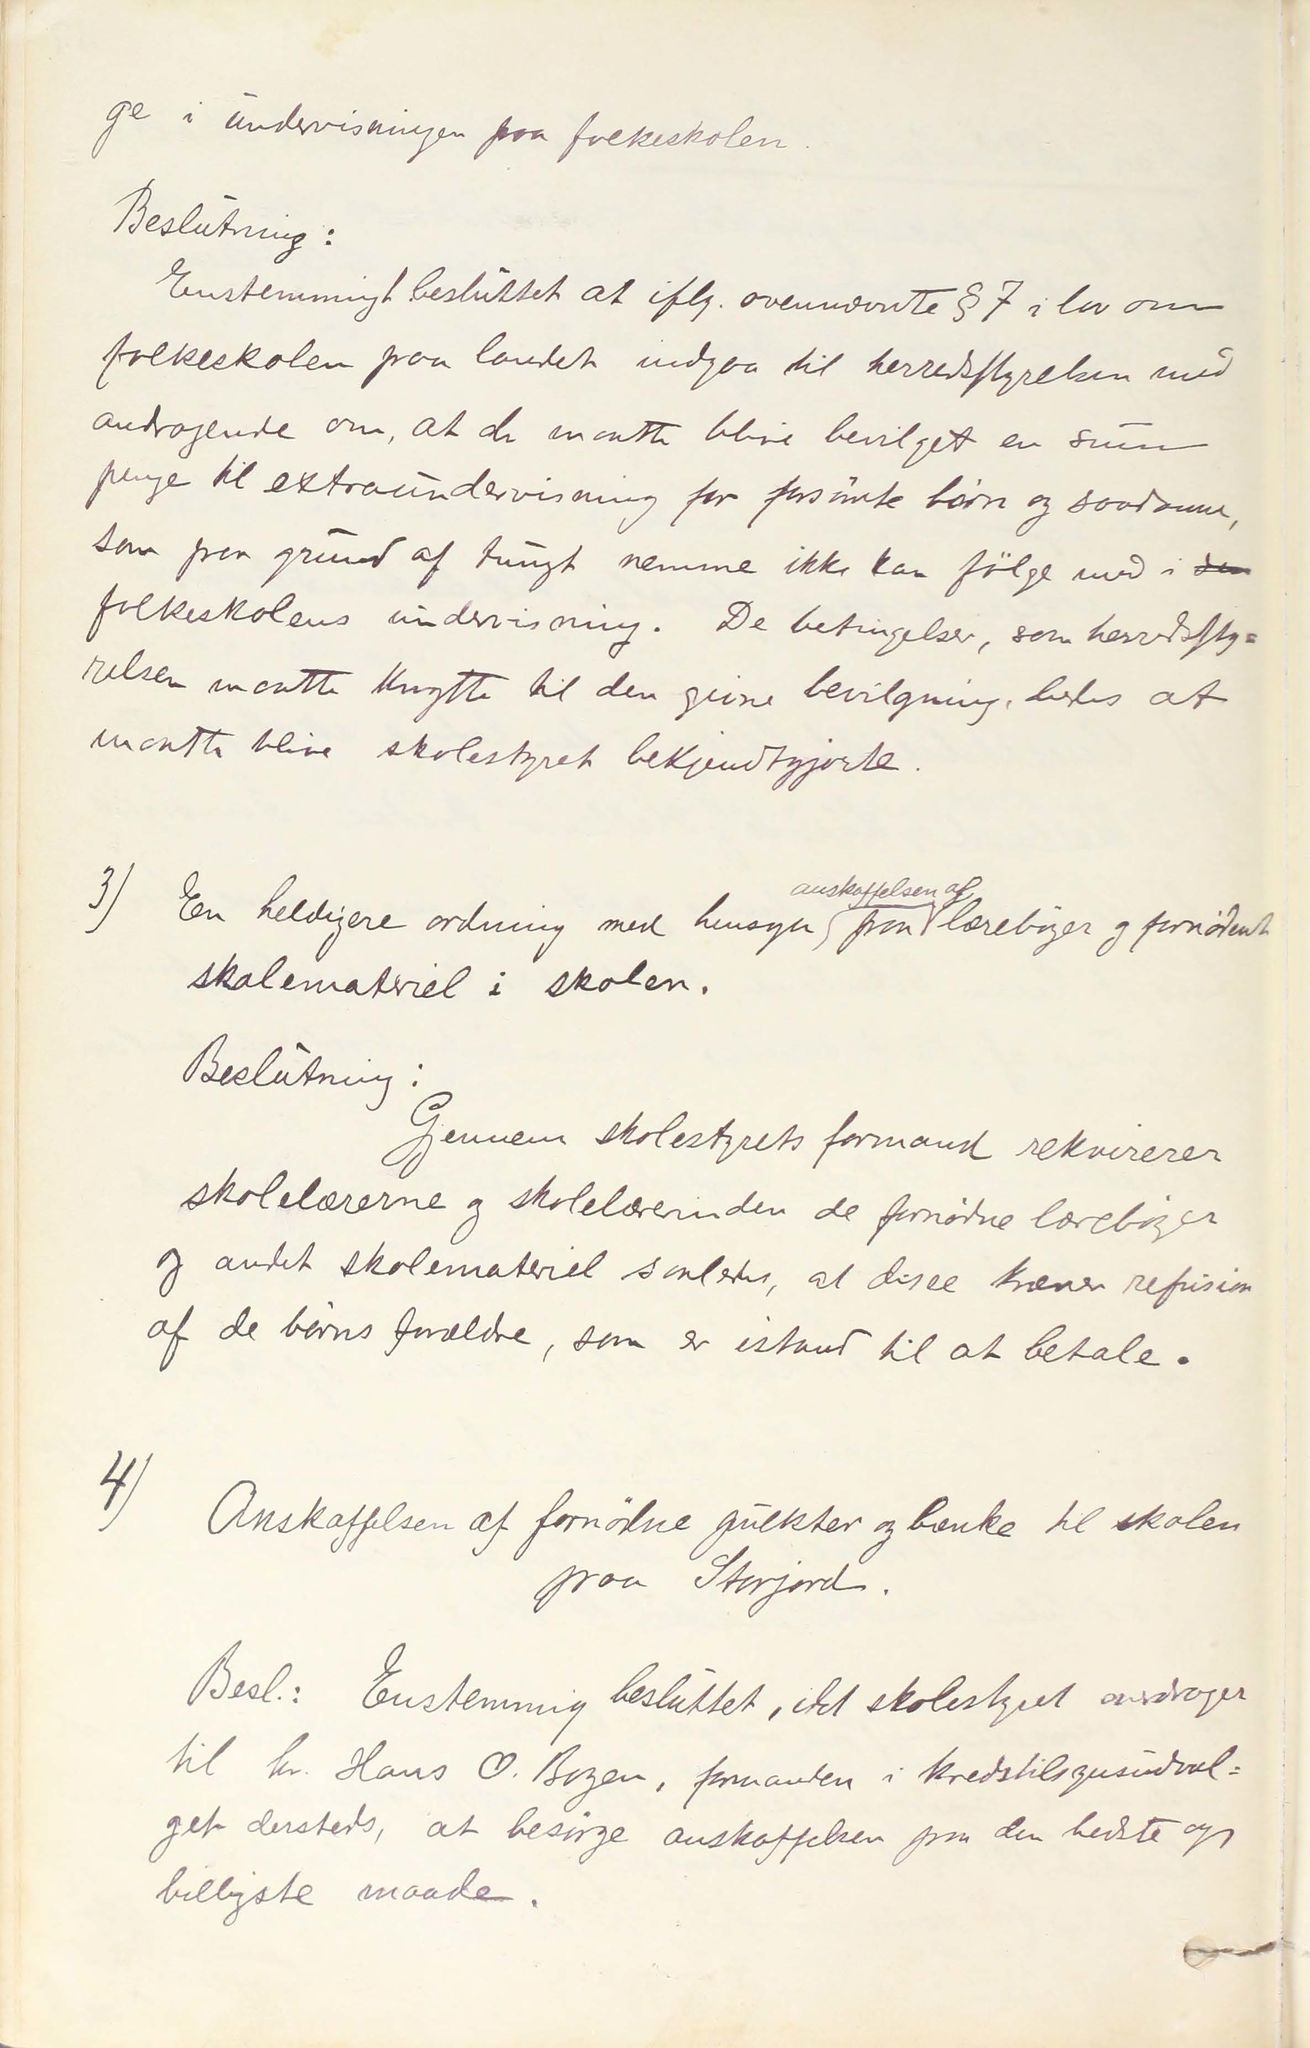 ge i undervisningen paa folkeskolen.
Beslutning:
Enstemmigt besluttet at iflg. ovennævnte § 7 i lov om
folkeskolen paa landet indgaa til herredsstyrelsen med
andragende om, at der maatte blive bevilget en sum
penge til extraundervisning for forsömte börn og saadanne,
som paa grund af tungt nemme ikke kan fölge med i den
folkeskolens undervisning. De betingelser, som herredssty=
relsen maatte knytte til den givne bevilgning, bedes at
maatte blive skolestyret bekjendtgjorte.
anskaffelsen af
3) En heldigere ordning med hensyn paa læreböger og fornödent
skolemateriel i skolen.
Beslutning:
Gjennem skolestyrets formand rekvirerer
skolelærerne og skolelærerinden de fornödne læreböger
og andet skolemateriel saaledes, at disse kræver refusion
af de börns forældre, som er istand til at betale.
4) Anskaffelsen af fornödne pulkter og bænke til skolen
paa Storjord.
Besl.: Enstemmig besluttet, at skolestyret overdrager
til hr. Hans O. Bogen, formanden i kredstilsynsudval=
get dersteds, at besörge anskaffelsen paa den bedste og
billigste maade.